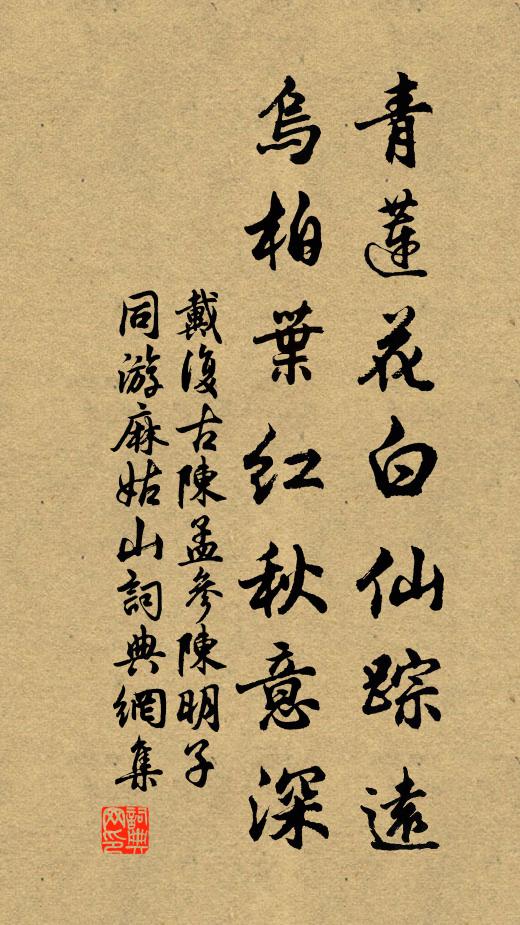 青蓮花白仙踪遠
烏柏葉红秋意深
戴復古陳孟參陳明子
同游麻姑山詞典網集
詞典网印